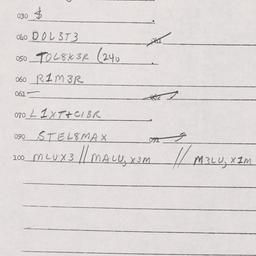 030 $
040 DOL3T3
050 TOL8X3R (240
060 R1M3R
061
070 L1XT+C13R
090 STEL8MAX
100 MLUX3 // MALU,X3M // M3LU,X1M